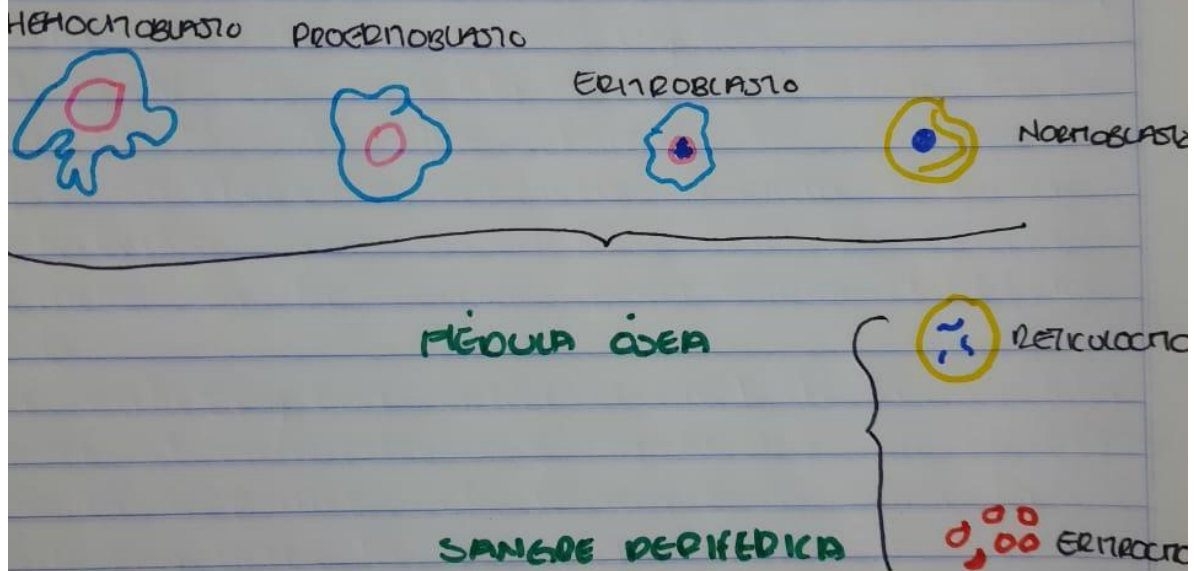 HEMOCITOBLASTO PROERITROBLASTO
ERITROBLASTO
NORMOBLASTO
MÉDULA ÓSEA
RETICULOCITO
SANGRE PERIFÉRICA
ERITROCITO